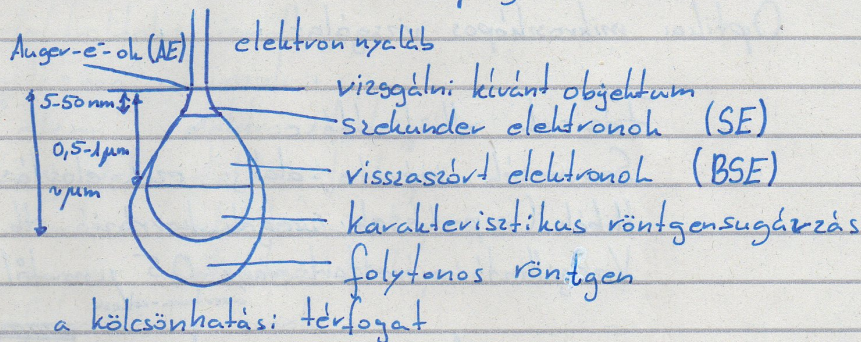 Auger-e⁻-ok (AE) elektronnyaláb
vizsgálni kívánt objektum
5-50nm
szekunder elektronok (SE)
0,5-1μm
visszaszórt elektronok (BSE)
~μm
karakterisztikus röntgensugárzás
folytonos röntgen
a kölcsönhatási térfogat